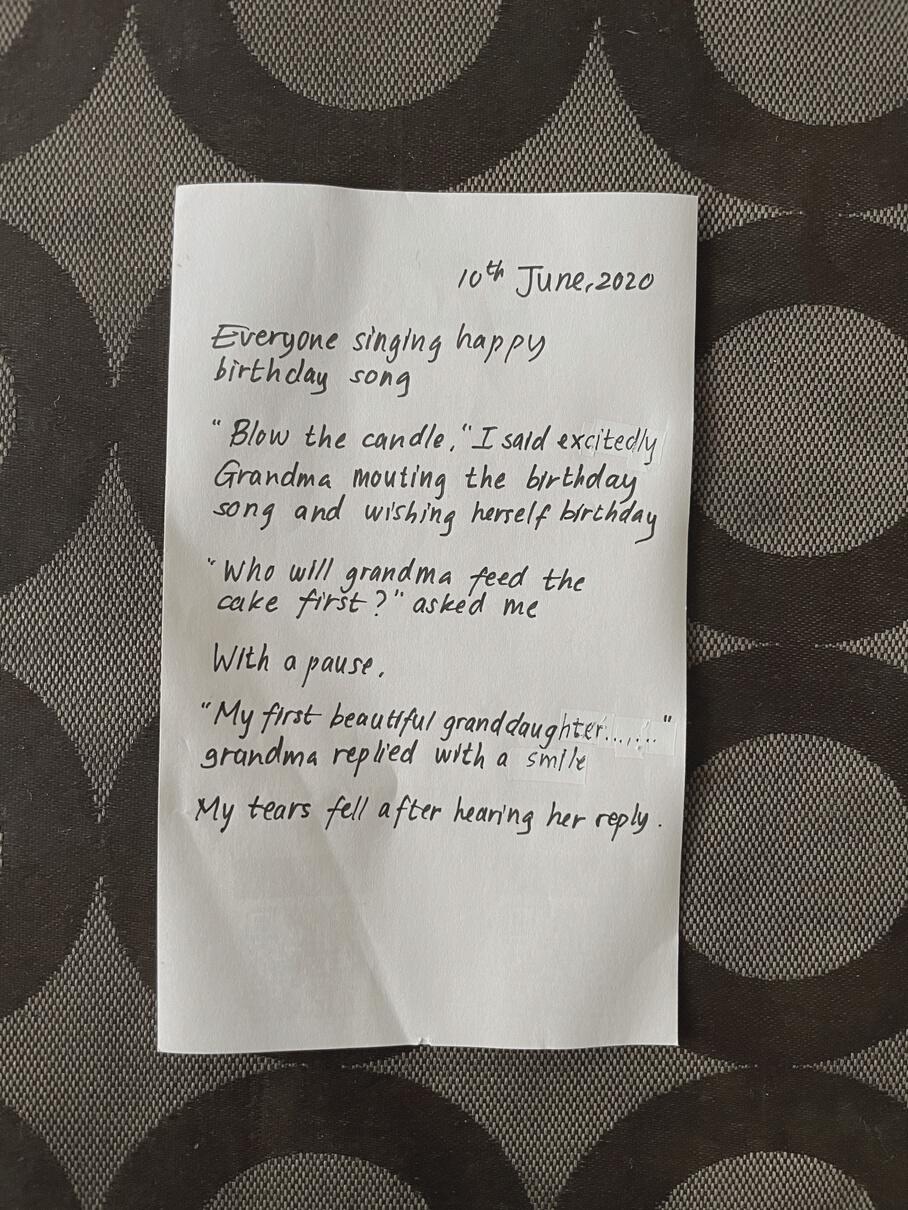 10th June, 2020
Everyone singing happy
birthday song
"Blow the candle," I said excitedly
Grandma mouting the birthday
song and wishing herself birthday
"Who will grandma feed the
cake first?" asked me
With a pause.
"My first beautiful granddaughter......."
grandma replied with a smile
My tears fell after hearing her reply.